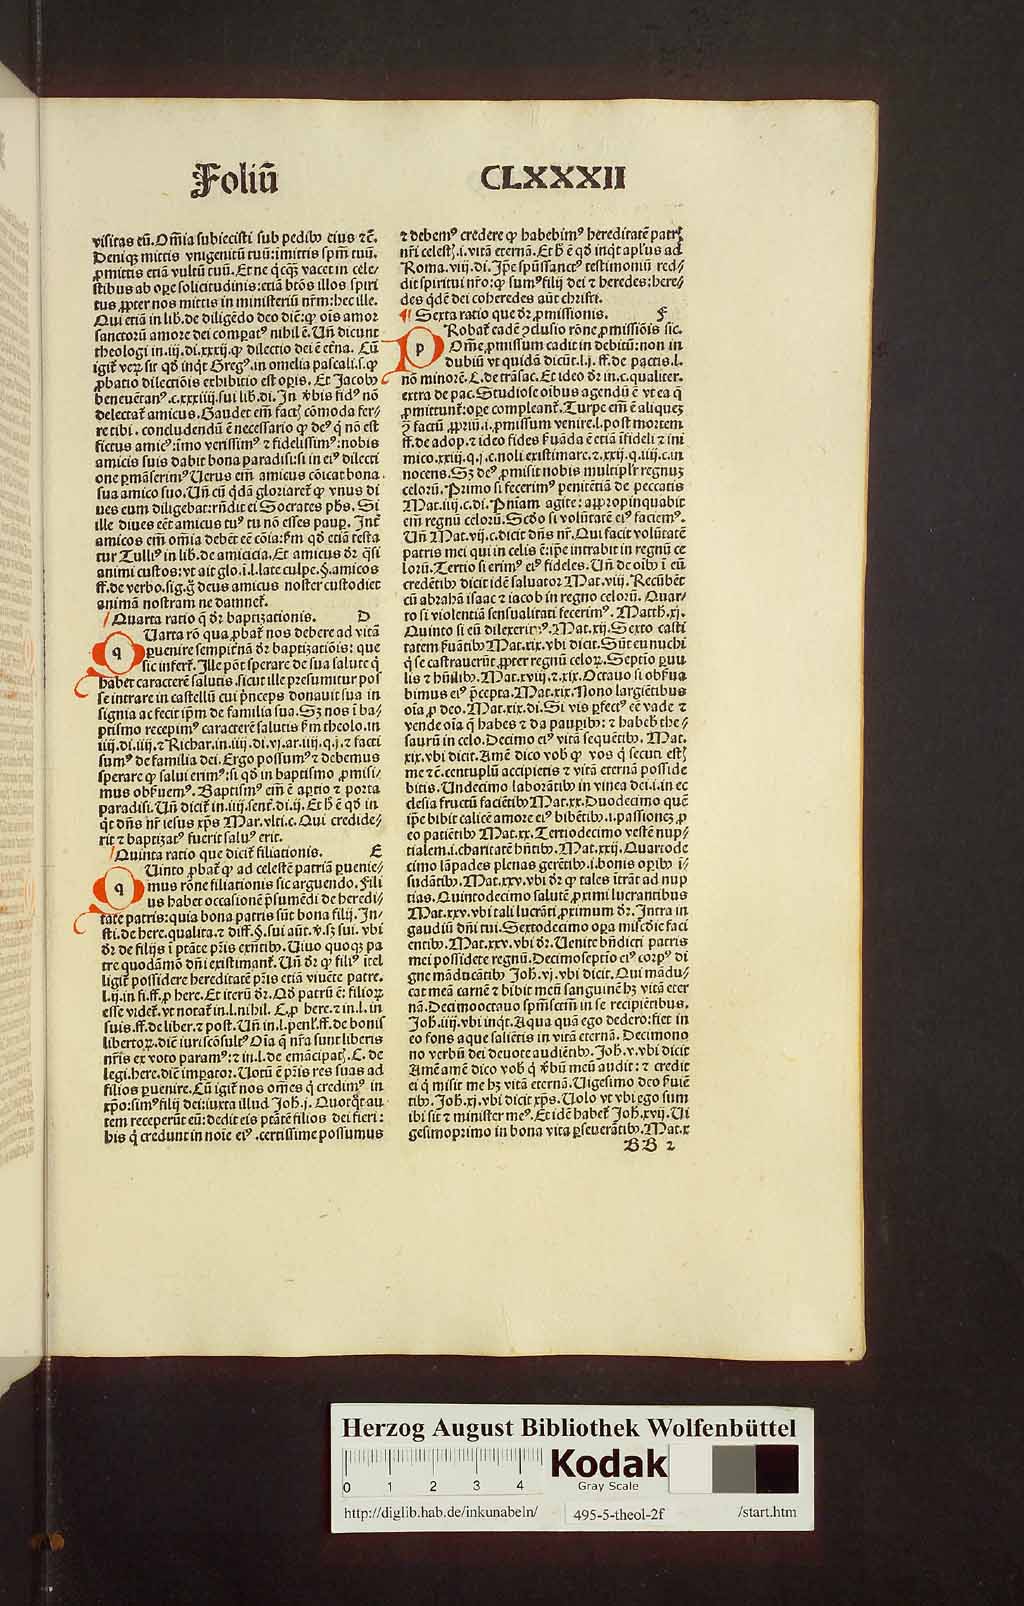 Foliū CLXXXII
visitas eū. Om̄ia subiecisti sub pedibꝰ eius ⁊c̄.
Deniqꝫ mittis vnigenitū tuū: imittis sp̄m tuū.
ꝓmittis etiā vultū tuū. Et ne q̄cqꝫ vacet in cele⸗
stibus ab oꝑe solicitudinis: etiā btōs illos spiri
tus ꝓpter nos mittis in ministeriū nr̄m: hec ille.
Qui etiā in lib. de diligēdo deo dic̄: ꝙ oīs amor
sanctorū amore dei compat᷑ nihil ē. Vn̄ dicunt
theologi in .iij. di. xxxij. ꝙ dilectio dei ē et̄na. Cū
igit᷑ veꝝ sit qd̄ inq̄t Gregꝰ. in omelia pascali. s. ꝙ
ꝓbatio dilectiōis exhibitio est oꝑis. Et Jacobꝰ
beneuētanꝰ. c. xxxiiij. sui lib. di. In v̄bis fidꝰ nō
delectat᷑ amicus. Gaudet em̄ factꝭ cōmoda fer⸗
re tibi. concludendū ē necessario ꝙ deꝰ q̄ nō est
fictus amicꝰ: imo verissimꝰ ⁊ fidelissimꝰ: nobis
amicis suis dabit bona paradisi: si in eiꝰ dilecti
one ꝑmāserimꝰ Verus em̄ amicus cōicat bona
sua amico suo. Vn̄ cū q̄dā gloriaret᷑ ꝙ vnus di
ues eum diligebat: rn̄dit ei Socrates ph̄s. Si
ille diues eēt amicus tuꝰ tu nō esses paup. Int᷑
amicos em̄ om̄ia debēt eē cōia: ẜm qd̄ etiā testa
tur Tulliꝰ in lib. de amicicia. Et amicus dr̄ q̄si
animi custos: vt ait glo. i. l. late culpe. §. amicos
ff. de verbo. sig. g̊ deus amicus noster custodiet
animā nostram ne damnet᷑.
Quarta ratio q̄ dr̄ baptizationis. D
QUarta rō qua ꝓbat᷑ nos debere ad vitā
ꝑuenire sempit᷑nā dr̄ baptizatiōis: que
sic infert᷑. Ille pōt sperare de sua salute q̄
habet caracterē salutis. sicut ille presumitur pos
se intrare in castellū cui p̄nceps donauit sua in
signia ac fecit ip̄m de familia sua. Sꝫ nos ī ba⸗
ptismo recepimꝰ caracterē salutis ẜm theolo. in
iiij. di. iiij. ⁊ Richar. in .iiij. di. vj. ar. iiij. q. j. ⁊ facti
sumꝰ de familia dei. Ergo possumꝰ ⁊ debemus
sperare ꝙ salui erimꝰ: si qd̄ in baptismo ꝓmisi⸗
mus obẜuemꝰ. Baptismꝰ em̄ ē aꝑtio ⁊ porta
paradisi. Vn̄ dicit᷑ in .iiij. sent̄. di. ij. Et h̄ ē qd̄ in
q̄t dn̄s nr̄ iesus xp̄s Mar. vlti. c. Qui credide⸗
rit ⁊ baptizatꝰ fuerit saluꝰ erit.
Quinta ratio que dicit᷑ filiationis. E
QUinto ꝓbat᷑ ꝙ ad celestē patriā ꝑuenie⸗
mus rōne filiationis sic arguendo. Fili
us habet occasionē p̄sumēdi de heredi⸗
tate patris: quia bona patris sūt bona filij. In⸗
sti. de here. qualita. ⁊ diff. §. sui aūt. v̄. sꝫ sui. vbi
dr̄ de filijs ī ptāte pr̄is exn̄tibꝰ. Viuo quoqꝫ pa
tre quodāmō dn̄i existimant᷑. Vn̄ dr̄ ꝙ filiꝰ itel
ligit᷑ possidere hereditatē pr̄is etiā viuēte patre.
l. ij. in fi. ff. ꝓ here. Et iterū dr̄. Qd̄ patrū ē: filioꝝ
esse videt᷑. vt notat᷑ in. l. nihil. C. ꝓ here. ⁊ in. l. in
suis. ff. de liber. ⁊ post. Vn̄ in. l. penl᷑. ff. de bonis
libertoꝝ. dic̄ iuriscōsultꝰ Oīa q̄ nr̄a sunt liberis
nr̄is ex voto paramꝰ: ⁊ in. l. de emācipatꝭ. C. de
legi. here. dic̄ impator. Votū ē pr̄is res suas ad
filios ꝑuenire. Cū igit᷑ nos om̄es q̄ credimꝰ in
xp̄o: simꝰ filij dei: iuxta illud Joh̄. j. Quotq̄t au
tem receperūt eū: dedit eis ptātē filios dei fieri:
his q̄ credunt in noīe eiꝰ. certissime possumus
⁊ debemꝰ credere ꝙ habebimꝰ hereditatē patrꝭ
nr̄i celestꝭ. i. vitā eternā. Et h̄ ē qd̄ inq̄t apl̄us ad
Roma. viij. di. Ip̄e spūssanctꝰ testimoniū red⸗
dit spiritui nr̄o: ꝙ sumꝰ filij dei ⁊ heredes: here⸗
des q̄dē dei coheredes aūt christi.
¶ Sexta ratio que dr̄ ꝓmissionis. F
PRobat᷑ eadē ꝯclusio rōne ꝓmissiōis sic.
Om̄e ꝓmissum cadit in debitū: non in
dubiū vt quidā dicūt. l. j. ff. de pactis. l.
nō minorē. C. de trāsac. Et ideo dr̄ in. c. qualiter.
extra de pac. Studiose oibus agendū ē vt ea q̄
ꝓmittunt᷑: oꝑe compleant᷑. Turpe em̄ ē aliqueꝫ
ꝯ̄ factū ꝓpriū. i. ꝓmissum venire. l. post mortem
ff. de adop. ⁊ ideo fides ẜuāda ē etiā īfideli ⁊ ini
mico. xxiij. q. j. c. noli existimare. ⁊. xxij. q. iiij. c. in
nocens. Sꝫ deꝰ ꝓmisit nobis multiplr̄ regnuꝫ
celorū. Primo si fecerimꝰ penitētiā de peccatis
Mat. iiij. c. di. Pn̄iam agite: appropinquabit
em̄ regnū celorū. Scd̄o si volūtatē eiꝰ faciemꝰ.
Vn̄ Mat. vij. c. dicit dn̄s nr̄. Qui facit volūtatē
patris mei qui in celis ē: ip̄e intrabit in regnū ce
lorū. Tertio si erimꝰ eiꝰ fideles. Vn̄ de oibꝰ ī eū
credētibꝰ dicit idē saluator Mat. viij. Recūbēt
cū abrahā isaac ⁊ iacob in regno celorū. Quar⸗
to si violentiā sensualitati fecerimꝰ. Matth. xj.
Quinto si eū dilexerimꝰ. Mat. xij. Sexto casti
tatem ẜuātibꝰ Mat. xix. vbi dicit. Sūt eunuchi
q̄ se castrauerūt ꝓpter regnū celoꝝ. Septīo ꝑuu
lis ⁊ hūilibꝰ. Mat. xviij. ⁊. xix. Octauo si obẜua
bimus eiꝰ p̄cepta. Mat. xix. Nono largiētibus
oīa ꝓ deo. Mat. xix. di. Si vis ꝑfectꝰ eē vade ⁊
vende oīa q̄ habes ⁊ da pauꝑibꝰ: ⁊ habeb̄ the⸗
saurū in celo. Decimo eiꝰ vitā sequētibꝰ. Mat.
xix. vbi dicit. Amē dico vob̄ ꝙ vos q̄ secuti estꝭ
me ⁊c̄. centuplū accipietis ⁊ vitā eternā posside
bitis. Undecimo laborātibꝰ in vinea dei. i. in ec
clesia fructū faciētibꝰ Mat. xx. Duodecimo quē
ip̄e bibit calicē amore eiꝰ bibētibꝰ. i. passionēꝫ ꝓ
eo patiētibꝰ Mat. xx. Tertiodecimo vestē nup⸗
tialem. i. charitatē hn̄tibꝰ. Mat. xxij. Quartode
cimo lāpades plenas gerētibꝰ. i. bonis oꝑibꝰ ī⸗
sudātibꝰ. Mat. xxv. vbi dr̄ ꝙ tales ītrāt ad nup
tias. Quintodecimo salutē ꝓximi lucrantibus
Mat. xxv. vbi tali lucrāti ꝓximum dr̄. Intra in
gaudiū dn̄i tui. Sextodecimo oꝑa miscd̄ie faci
entibꝰ. Mat. xxv. vbi dr̄. Venite bn̄dicti patris
mei possidete regnū. Decimoseptīo eiꝰ corpꝰ di
gne māducātibꝰ Joh̄. vj. vbi dicit. Qui mādu⸗
cat meā carnē ⁊ bibit meū sanguinē hꝫ vitā eter
nā. Decimooctauo sp̄m sctm̄ in se recipiētibus.
Joh̄. iiij. vbi inq̄t. Aqua quā ego dedero: fiet in
eo fons aque saliētis in vitā eternā. Decimono
no verbū dei deuote audiētibꝰ. Joh̄. v. vbi dicit
Amē amē dico vob̄ q̄ v̄bū meū audit: ⁊ credit
ei q̄ misit me hꝫ vitā eternā. Vigesimo deo ẜuiē
tibꝰ. Joh̄. xj. vbi dicit xp̄s. Volo vt vbi ego sum
ibi sit ⁊ minister meꝰ. Et idē habet᷑ Joh̄. xvij. Vi
gesimoprimo in bona vita ꝑseuerātibꝰ. Mat. x
BB 2
Herzog August Bibliothek Wolfenbüttel
0 1 2 3 4
Kodak
Gray Scale
http://diglib.hab.de/inkunabeln/ 495-5-theol-2f /start.htm